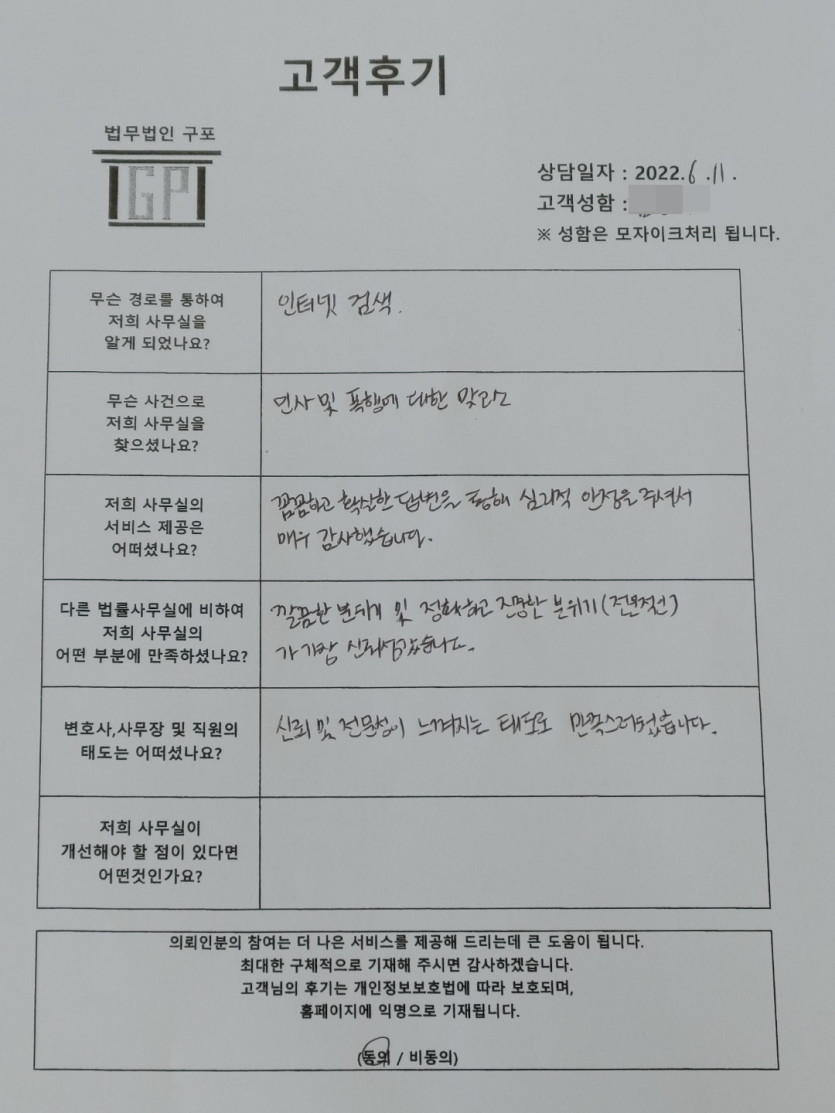 고객후기
법무법인 구포
GP
상담일자 : 2022.6.11.
고객성함 :
※ 성함은 모자이크처리 됩니다.
무슨 경로를 통하여
저희 사무실을
알게 되었나요?
인터넷 검색.
무슨 사건으로
저희 사무실을
찾으셨나요?
민사 및 폭행에 대한 맞고소
저희 사무실의
서비스 제공은
어떠셨나요?
꼼꼼하고 확실한 답변을 통해 심리적 안정을 주셔서
매우 감사했습니다.
다른 법률사무실에 비하여
저희 사무실의
어떤 부분에 만족하셨나요?
깔끔한 분위기 및 정확하고 진명한 분위기(전문적인)
가 가장 신뢰성갔습니다.
변호사,사무장 및 직원의
태도는 어떠셨나요?
신뢰 및 전문성이 느껴지는 태도로 만족스러웠습니다.
저희 사무실이
개선해야 할 점이 있다면
어떤것인가요?
의뢰인분의 참여는 더 나은 서비스를 제공해 드리는데 큰 도움이 됩니다.
최대한 구체적으로 기재해 주시면 감사하겠습니다.
고객님의 후기는 개인정보보호법에 따라 보호되며,
홈페이지에 익명으로 기재됩니다.
(동의 / 비동의)